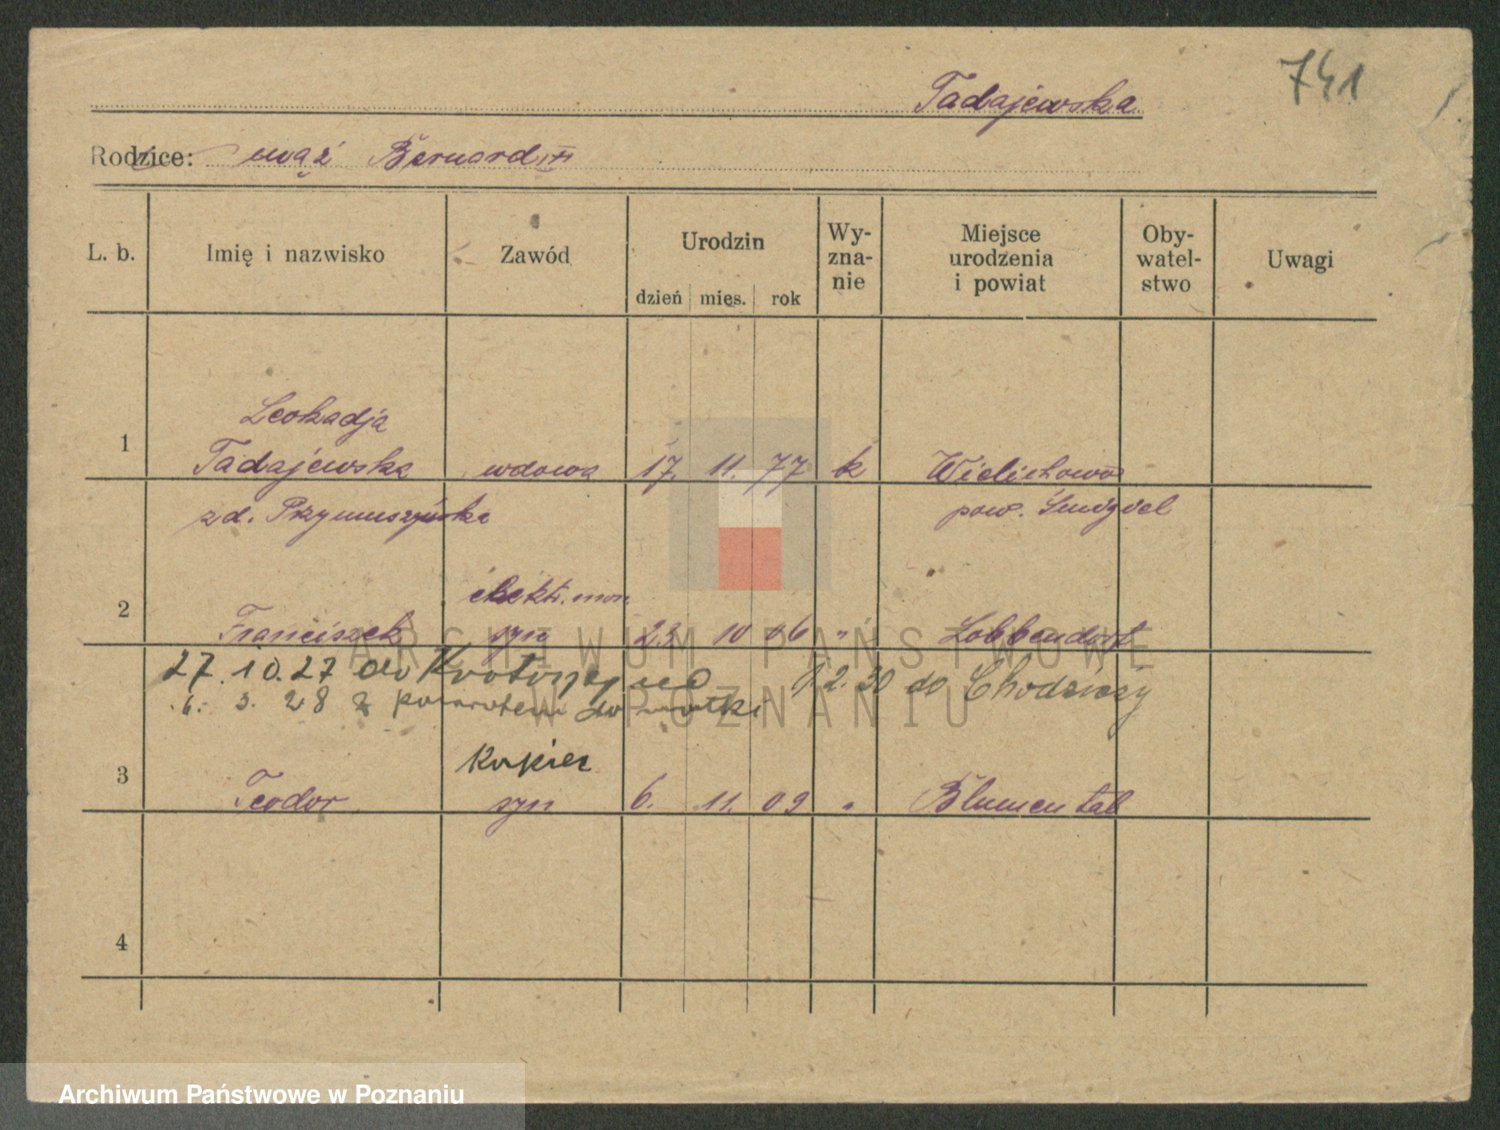 741
Tadajewska
Rodzice: mąż Bernard
L. b. Imię i nazwisko Zawód Urodzin dzień mięs. rok Wy-zna-nie Miejsce urodzenia i powiat Oby-watel-stwo Uwagi
Leokadja
1 Tadajewska wdowa 17. 11. 77 k Wielichowo
zd. Przymuszyńska pow. Śmigiel
elektr. mon.
2 Franciszek syn 23 10 06 " Lobbendorf
27.10.27 do Krotoszyna 2.30 do Chodzieży
6. 3. 28 z powrotem do matki
kupiec
3 Teodor syn 6. 11. 09 " Blumental
4
ARCHIWUM PAŃSTWOWE
W POZNANIU
Archiwum Państwowe w Poznaniu